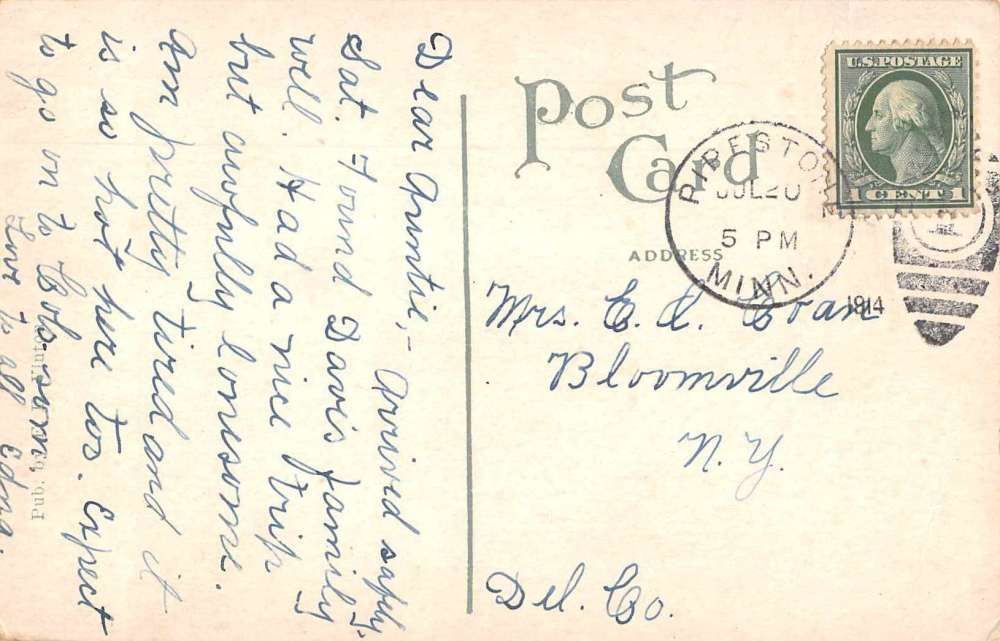 Dear Auntie,- Arrived safely.
Sat. Found Davis family
well. Had a nice trip
but awfully lonesome.
Am pretty tired and it
is so hot here too. Expect
to go on to
Love to all Edna.
Pub. by
Post
Card
ADDRESS
U.S. POSTAGE
1 CENT 1
PIPESTONE
JUL 20
5 PM
MINN.
1914
Mrs. E. L.
Bloomville
N. Y.
Del. Co.